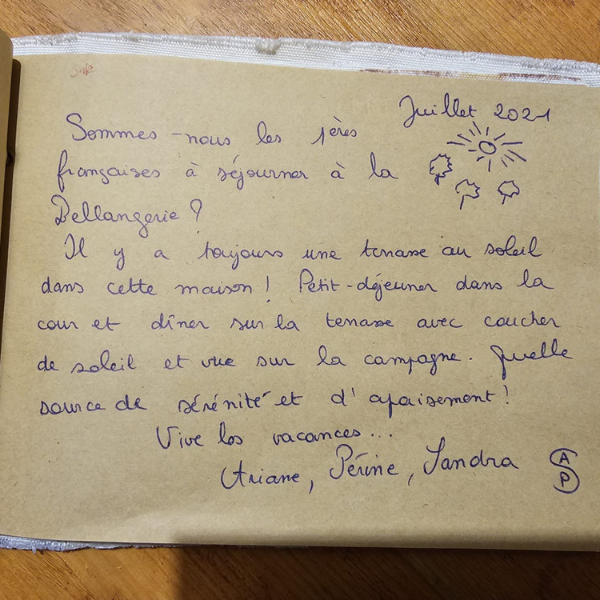 Juillet 2021
Sommes-nous les 1ères
françaises à séjourner à la
Bellangerie ?
Il y a toujours une terrasse au soleil
dans cette maison ! Petit-déjeuner dans la
cour et dîner sur la terrasse avec coucher
de soleil et vue sur la campagne. Quelle
source de sérénité et d'apaisement !
Vive les vacances...
Ariane, Périne, Sandra
A
S
P